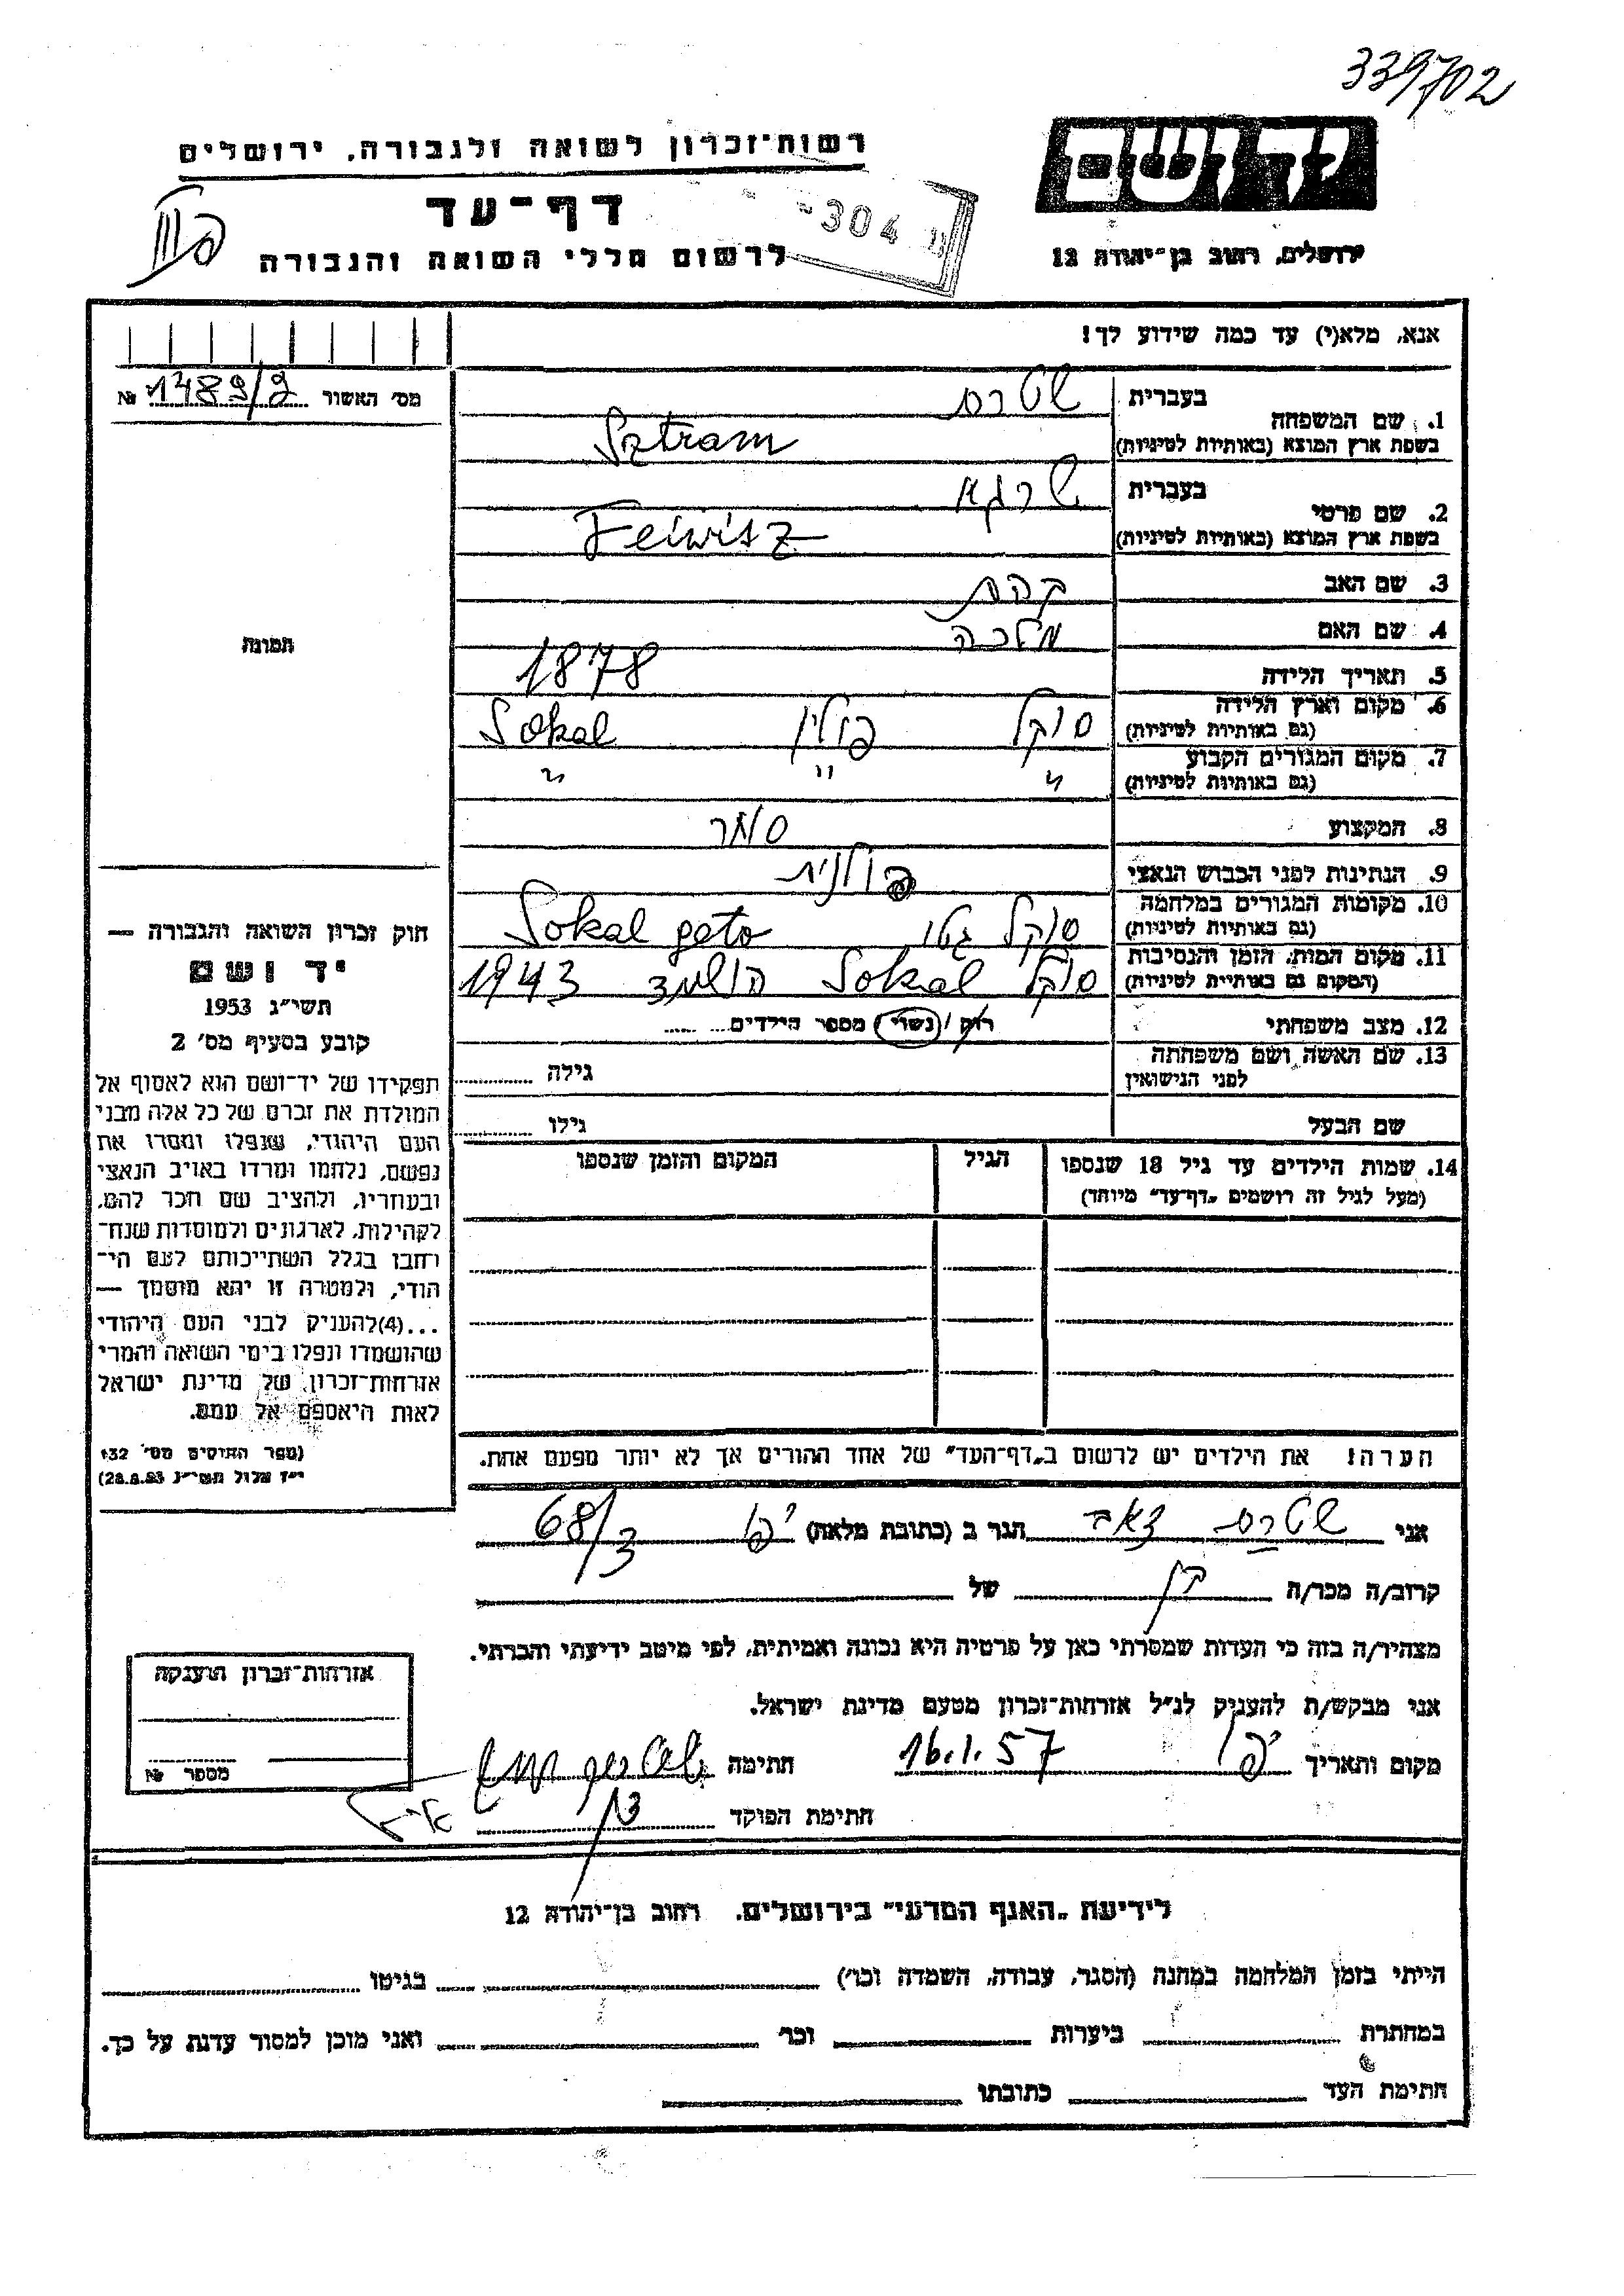 339702
יד ושם
ירושלים, רחוב בן־יהודה 12
רשות־זכרון לשואה ולגבורה, ירושלים
דף־עד
לרשום חללי השואה והגבורה
304
אנא, מלא(י) עד כמה שידוע לך!
מס' האשור 1489/2 №
תמונה
1. שם המשפחה בעברית שטרם
בשפת ארץ המוצא (באותיות לטיניות) Sztram
2. שם פרטי בעברית שרגא
בשפת ארץ המוצא (באותיות לטיניות) Feiwisz
3. שם האב קהת
4. שם האם מלכה
5. תאריך הלידה 1878
6. מקום וארץ הלידה (גם באותיות לטיניות) סוקל פולין Sokal
7. מקום המגורים הקבוע (גם באותיות לטיניות) " " "
8. המקצוע סוחר
9. הנתינות לפני הכבוש הנאצי פולנית
10. מקומות המגורים במלחמה (גם באותיות לטיניות) סוקל גטו Sokal geto
11. מקום המות, הזמן והנסיבות (המקום גם באותיות לטיניות) סוקל Sokal הושמד 1943
12. מצב משפחתי רוק / נשוי / מספר הילדים
13. שם האשה ושם משפחתה לפני הנישואין גילה
שם הבעל גילו
14. שמות הילדים עד גיל 18 שנספו הגיל המקום והזמן שנספו
(מעל לגיל זה רושמים „דף־עד" מיוחד)
חוק זכרון השואה והגבורה —
יד ושם
תשי"ג 1953
קובע בסעיף מס' 2
תפקידו של יד־ושם הוא לאסוף אל
המולדת את זכרם של כל אלה מבני
העם היהודי, שנפלו ומסרו את
נפשם, נלחמו ומרדו באויב הנאצי
ובעוזריו, ולהציב שם וזכר להם,
לקהילות, לארגונים ולמוסדות שנח־
רחבו בגלל השתייכותם לעם הי־
הודי, ולמטרה זו יהא מוסמך —
...(4)להעניק לבני העם היהודי
שהושמדו ונפלו בימי השואה והמרי
אזרחות־זכרון של מדינת ישראל
לאות היאספם אל עמם.
(ספר החוקים מס' 132,
י"ז אלול תשי"ג 28.8.53)
הערה! את הילדים יש לרשום ב„דף־העד" של אחד ההורים אך לא יותר מפעם אחת.
אני שטרם זאב הגר ב (כתובת מלאה) יפו 68/3
קרוב/ה מכר/ה בן של
מצהיר/ה בזה כי העדות שמסרתי כאן על פרטיה היא נכונה ואמיתית, לפי מיטב ידיעתי והכרתי.
אני מבקש/ת להעניק לנ"ל אזרחות־זכרון מטעם מדינת ישראל.
מקום ותאריך יפו 16.1.57 חתימה
חתימת הפוקד
אזרחות־זכרון הוענקה
מספר №
לידיעת „האגף המדעי" בירושלים, רחוב בן־יהודה 12
הייתי בזמן המלחמה במחנה (הסגר, עבודה, השמדה וכו') בגיטו
במחתרת ביערות וכו' ואני מוכן למסור עדות על כך.
חתימת העד כתובתו